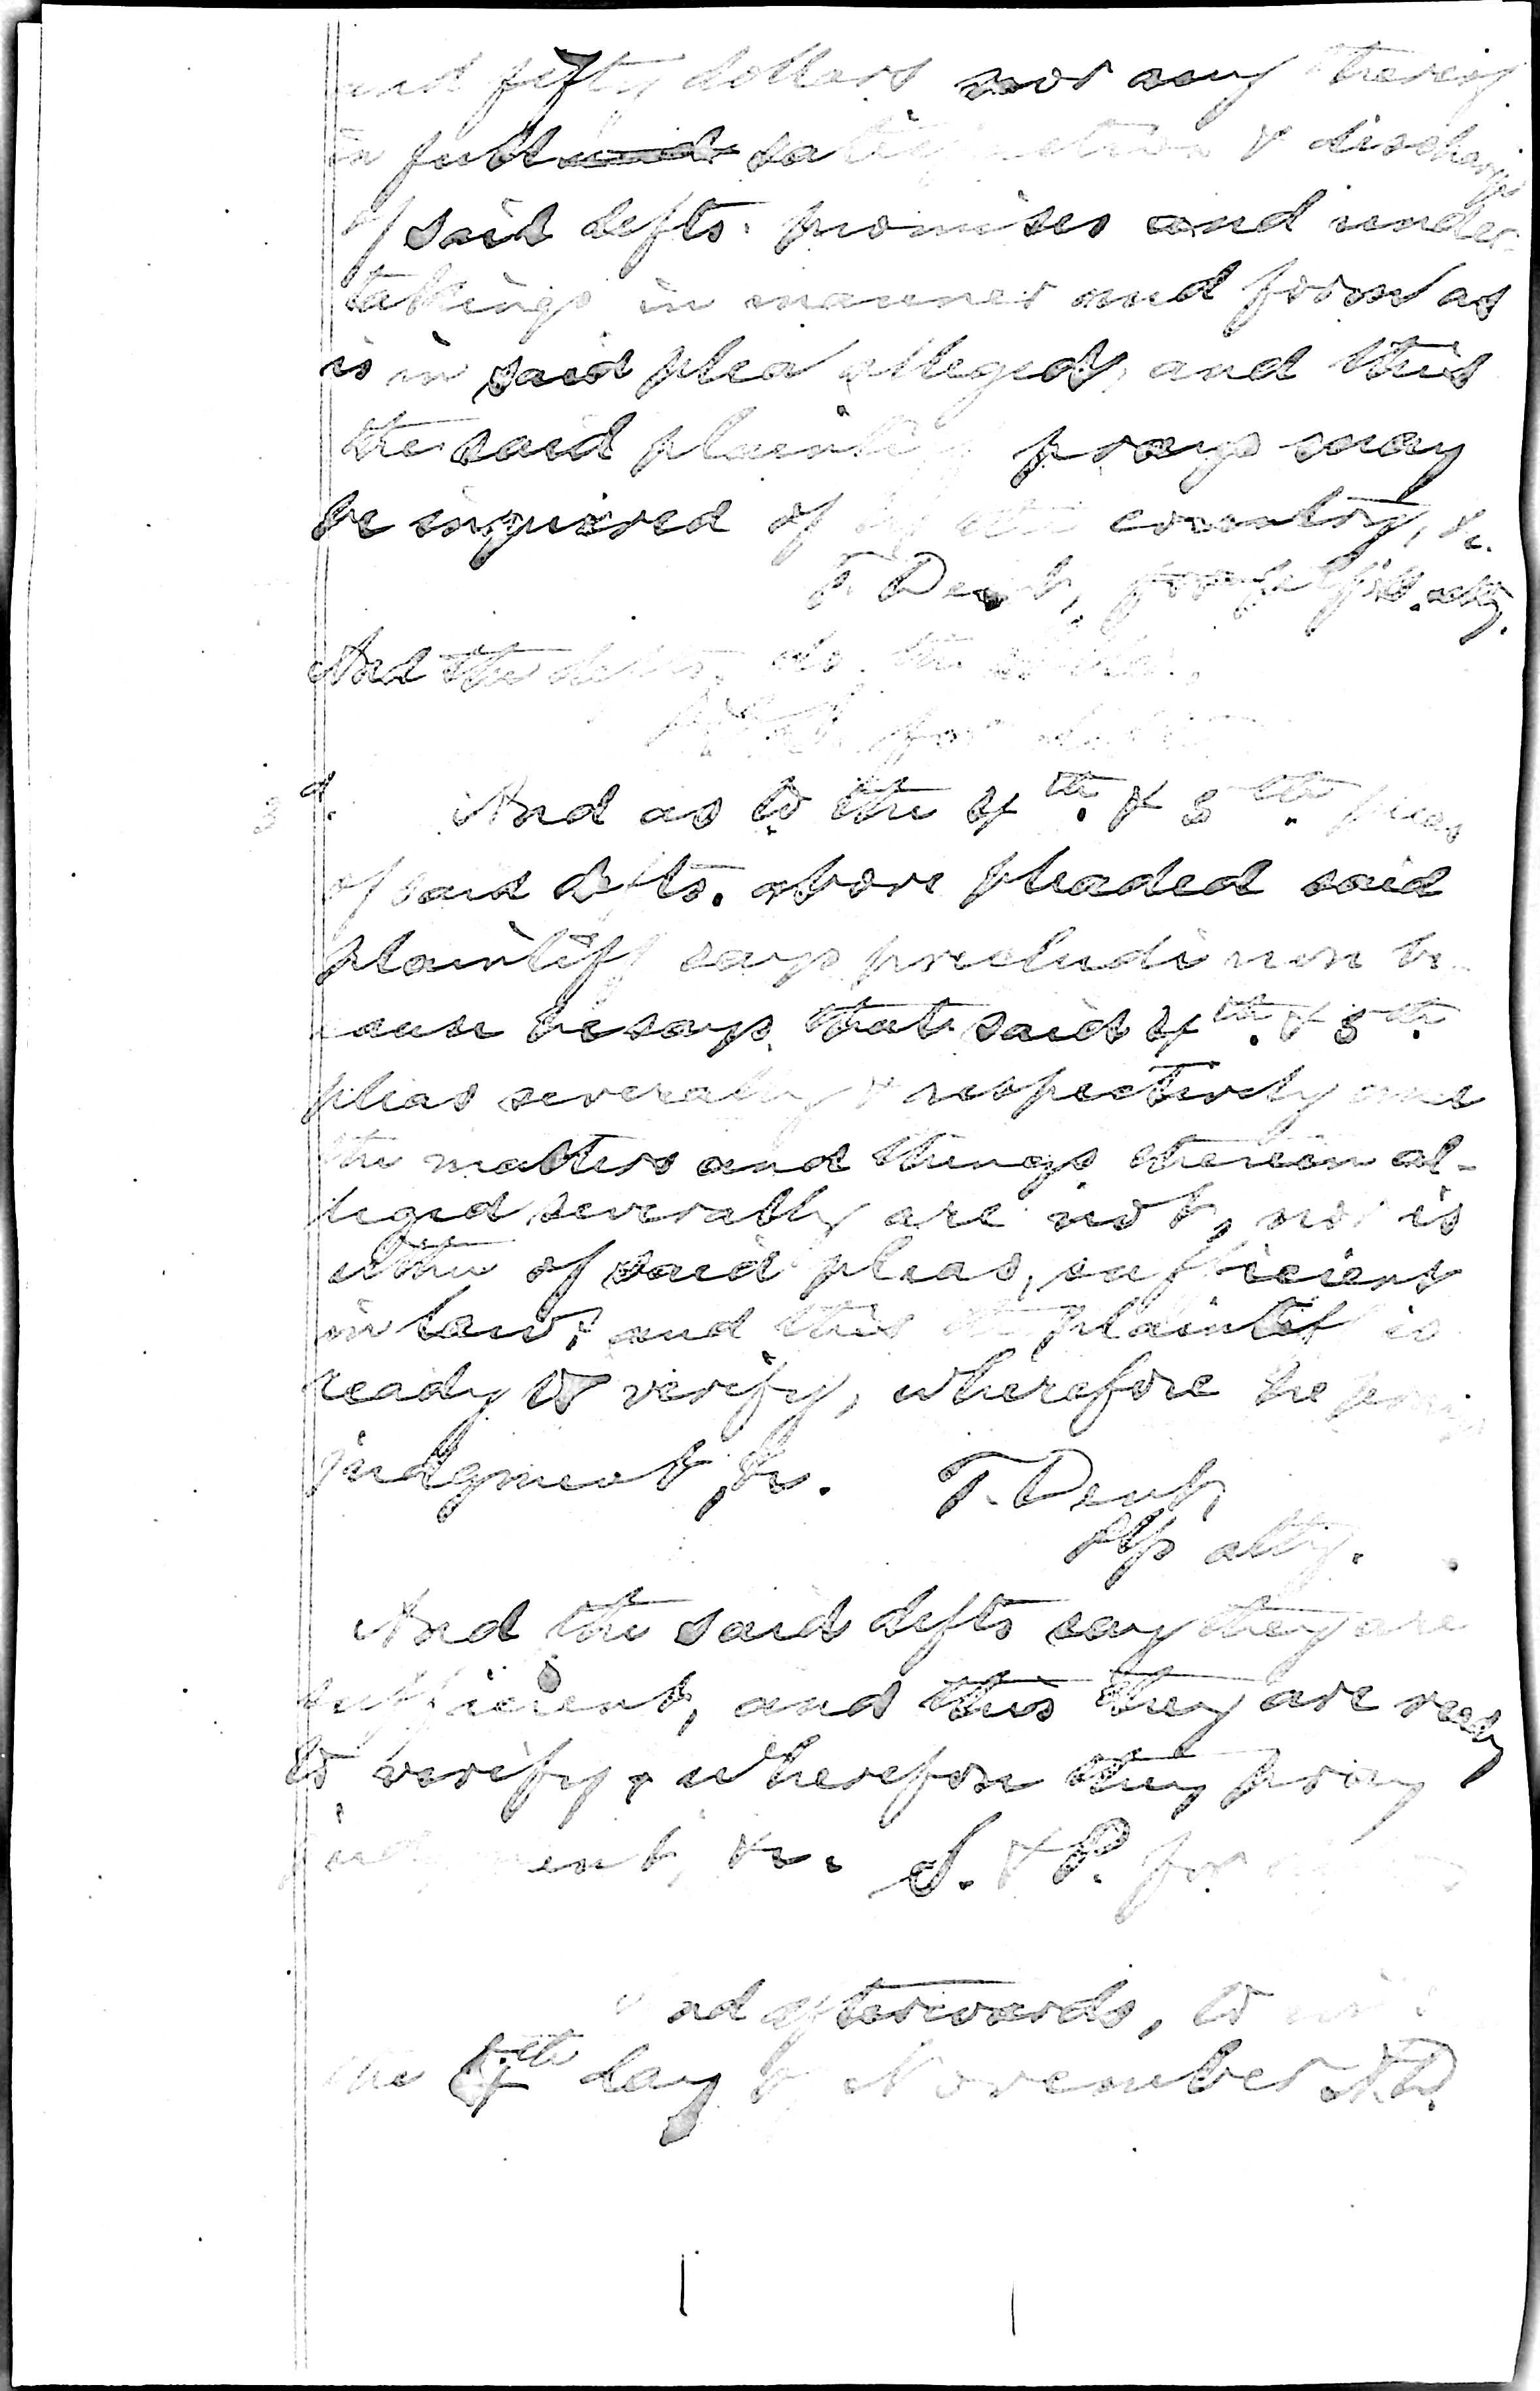 and fifty dollars nor any thereof
in full ~~and~~ satisfaction & discharge
of said defts. promises and under-
takings in manner and form as
is in said plea alleged, and this
the said plaintiff prays may
be inquired of by the country, &c.
T. Dent, pltfs. atty.
And the defts. do the like.
for defts.
3d. And as to the 4th. & 5th. pleas
of said defts. above pleaded said
plaintiff says precludi non be-
cause he says that said 4th. & 5th.
pleas severally & respectively and
the matters and things therein al-
leged severally are not, nor is
either of said pleas, sufficient
in law; and this the plaintiff is
ready to verify, wherefore he prays
judgment, &c. T. Dent,
Plfs atty.
And the said defts say they are
sufficient, and this they are ready
to verify, wherefore they pray
judgment, &c. S. & P. for
And afterwards, to wit:
the day of November A.D.